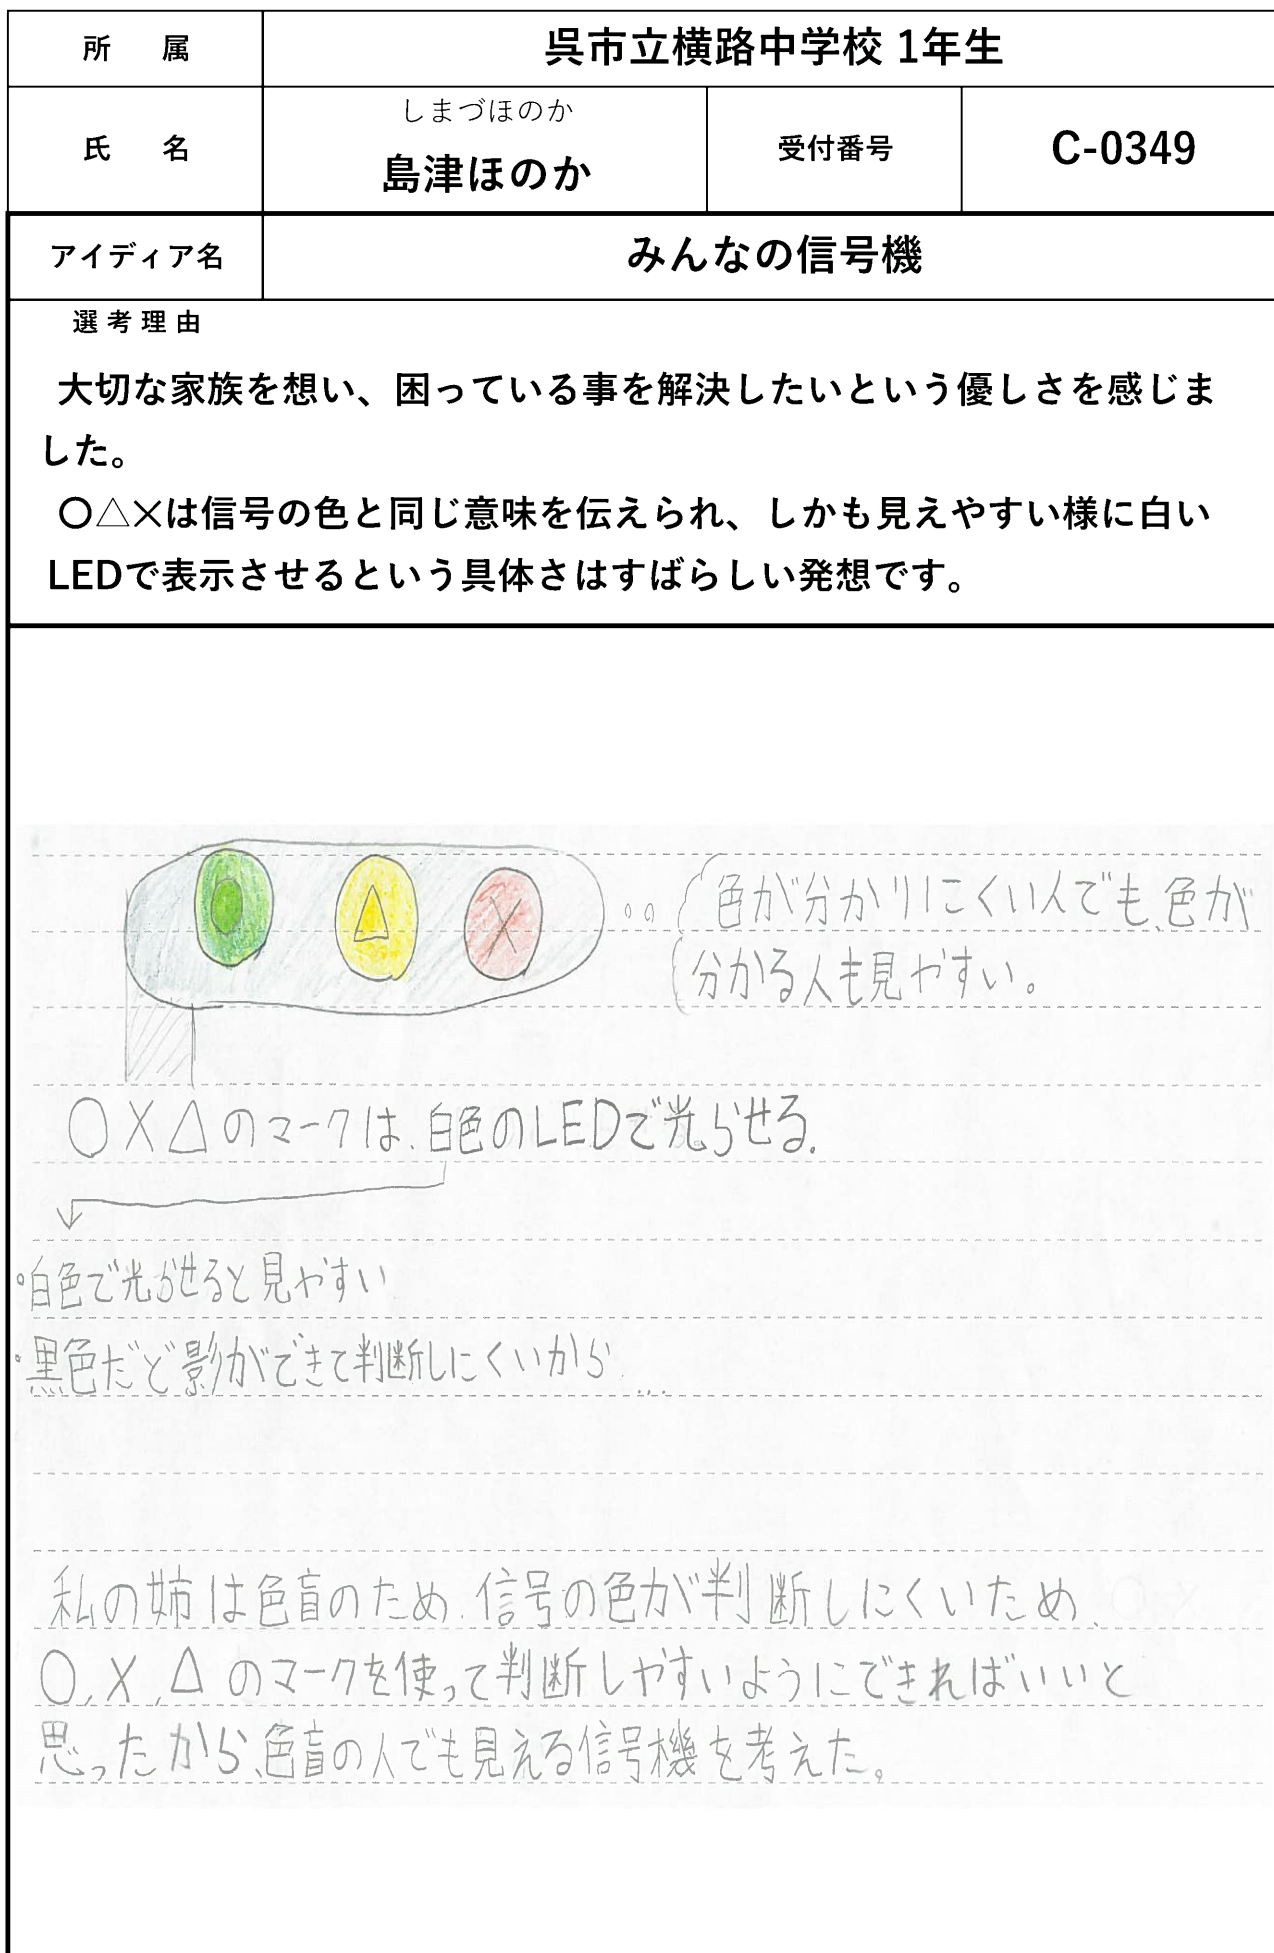 所 属
呉市立横路中学校 1年生
氏 名
しまづほのか
島津ほのか
受付番号
C-0349
アイディア名
みんなの信号機
選考理由
大切な家族を想い、困っている事を解決したいという優しさを感じま
した。
〇△×は信号の色と同じ意味を伝えられ、しかも見えやすい様に白い
LEDで表示させるという具体さはすばらしい発想です。
○ △ ×
色が分かりにくい人でも、色が
分かる人も見やすい。
○×△のマークは、白色のLEDで光らせる.
・白色で光らせると見やすい
・黒色だと影ができて判断しにくいから…
私の姉は色盲のため、信号の色が判断しにくいため、
○、×、△のマークを使って判断しやすいようにできればいいと
思ったから、色盲の人でも見える信号機を考えた。